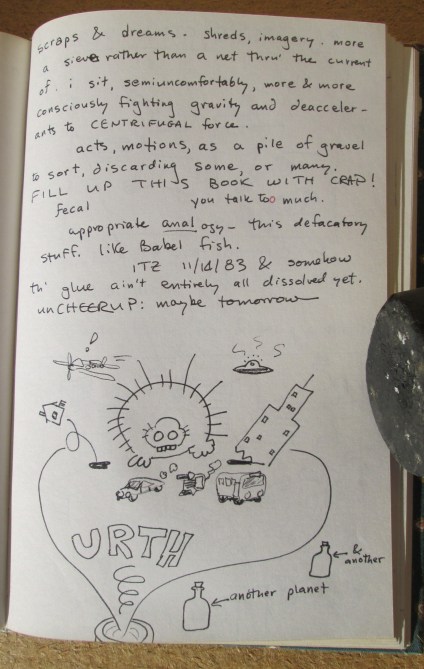 scraps & dreams. shreds, imagery. more
a sieve rather than a net thru' the current
of. i sit, semiuncomfortably, more & more
consciously fighting gravity and deacceler-
ants to CENTRIFUGAL force.
acts, motions, as a pile of gravel
to sort, discarding some, or many.
FILL UP THIS BOOK WITH CRAP!
fecal you talk too much.
appropriate analogy - this defacatory
stuff. like Babel fish.
ITZ 11/14/83 & somehow
th' glue ain't entirely all dissolved yet.
unCHEERUP: maybe tomorrow
URTH
& another
another planet